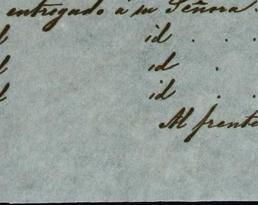 entregado á su Señora
d id . . .
d id . .
d id . .
Al frente